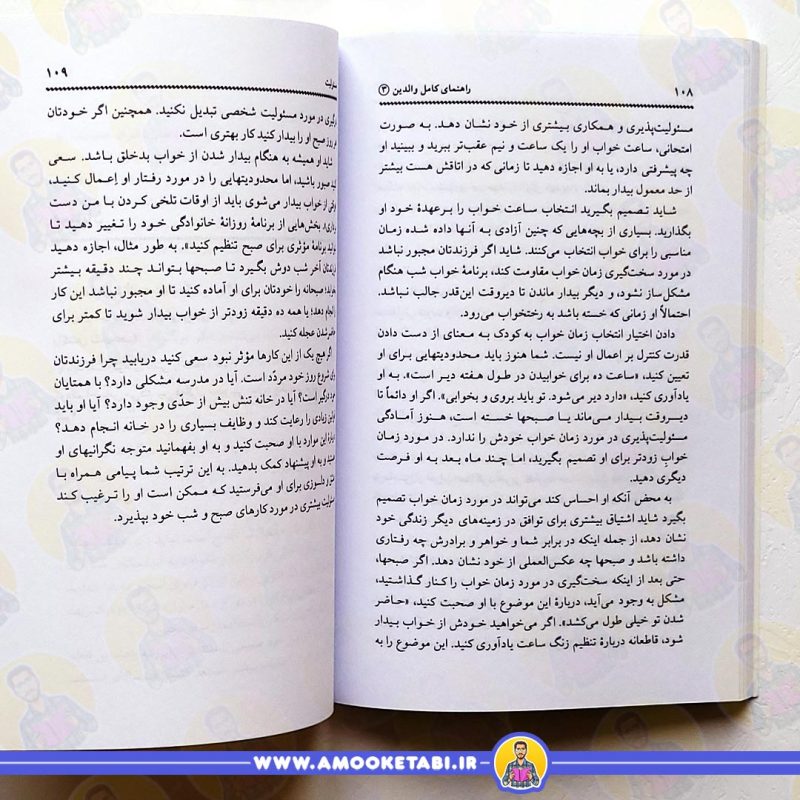 ۱۰۸ راهنمای کامل والدین ۳
مسئولیت‌پذیری و همکاری بیشتری از خود نشان دهد. به صورت
امتحانی، ساعت خواب او را یک ساعت و نیم عقب‌تر ببرید و ببینید او
چه پیشرفتی دارد، یا به او اجازه دهید تا زمانی که در اتاقش هست بیشتر
از حد معمول بیدار بماند.
شاید تصمیم بگیرید انتخاب ساعت خواب را برعهدهٔ خود او
بگذارید. بسیاری از بچه‌هایی که چنین آزادی به آنها داده شده زمان
مناسبی را برای خواب انتخاب می‌کنند. شاید اگر فرزندتان مجبور نباشد
در مورد سخت‌گیری زمان خواب مقاومت کند، برنامهٔ خواب شب هنگام
مشکل‌ساز نشود، و دیگر بیدار ماندن تا دیروقت این‌قدر جالب نباشد.
احتمالاً او زمانی که خسته باشد به رختخواب می‌رود.
دادن اختیار انتخاب زمان خواب به کودک به معنای از دست دادن
قدرت کنترل بر اعمال او نیست. شما هنوز باید محدودیتهایی برای او
تعیین کنید، «ساعت ده برای خوابیدن در طول هفته دیر است». به او
یادآوری کنید، «دارد دیر می‌شود. تو باید بروی و بخوابی». اگر او دائماً تا
دیروقت بیدار می‌ماند یا صبحها خسته است، هنوز آمادگی
مسئولیت‌پذیری در مورد زمان خواب خودش را ندارد. در مورد زمان
خوابِ زودتر برای او تصمیم بگیرید، اما چند ماه بعد به او فرصت
دیگری دهید.
به محض آنکه او احساس کند می‌تواند در مورد زمان خواب تصمیم
بگیرد شاید اشتیاق بیشتری برای توافق در زمینه‌های دیگر زندگی خود
نشان دهد، از جمله اینکه در برابر شما و خواهر و برادرش چه رفتاری
داشته باشد و صبحها چه عکس‌العملی از خود نشان دهد. اگر صبحها،
حتی بعد از اینکه سخت‌گیری در مورد زمان خواب را کنار گذاشتید،
مشکل به وجود می‌آید، دربارهٔ این موضوع با او صحبت کنید، «حاضر
شدن تو خیلی طول می‌کشد». اگر می‌خواهید خودش از خواب بیدار
شود، قاطعانه دربارهٔ تنظیم زنگ ساعت یادآوری کنید. این موضوع را به
۱۰۹
در مورد مسئولیت شخصی تبدیل نکنید. همچنین اگر خودتان
روز صبح او را بیدار کنید کار بهتری است.
شاید او همیشه به هنگام بیدار شدن از خواب بدخلق باشد. سعی
صبور باشید، اما محدودیتهایی را در مورد رفتار او اِعمال کنید،
از خواب بیدار می‌شوی باید از اوقات تلخی کردن با من دست
بخش‌هایی از برنامهٔ روزانهٔ خانوادگی خود را تغییر دهید تا
برنامهٔ مؤثری برای صبح تنظیم کنید». به طور مثال، اجازه دهید
آخر شب دوش بگیرد تا صبحها بتواند چند دقیقه بیشتر
صبحانه را خودتان برای او آماده کنید تا او مجبور نباشد این کار
دهد؛ یا همه ده دقیقه زودتر از خواب بیدار شوید تا کمتر برای
شدن عجله کنید.
اگر هیچ یک از این کارها مؤثر نبود سعی کنید دریابید چرا فرزندتان
شروع روز خود مردّد است. آیا در مدرسه مشکلی دارد؟ با همتایان
درگیر است؟ آیا در خانه تنش بیش از حدّی وجود دارد؟ آیا او باید
زیادی را رعایت کند و وظایف بسیاری را در خانه انجام دهد؟
این موارد با او صحبت کنید و به او بفهمانید متوجه نگرانیهای او
و به او پیشنهاد کمک بدهید. به این ترتیب شما پیامی همراه با
و دلسوزی برای او می‌فرستید که ممکن است او را ترغیب کند
مسئولیت بیشتری در مورد کارهای صبح و شب خود بپذیرد.
WWW.AMOOKETABI.IR